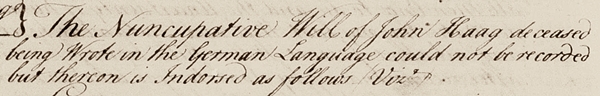 The Nuncupative Will of John Haag deceased
being Wrote in the German Language could not be recorded
but thereon is Indorsed as follows Vizt